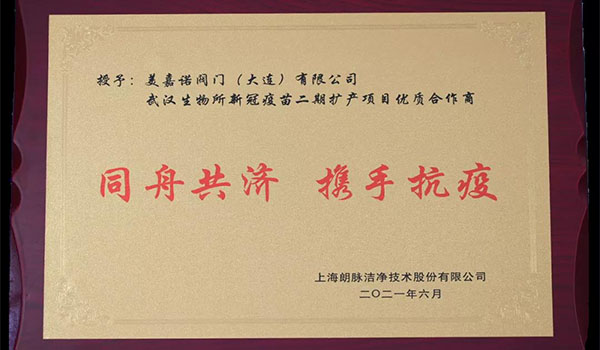 授予：美嘉诺阀门（大连）有限公司
武汉生物所新冠疫苗二期扩产项目优质合作商
同舟共济 携手抗疫
上海朗脉洁净技术股份有限公司
二〇二一年六月